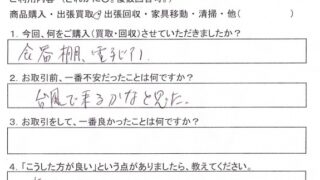 商品購入・出張買取・出張回収・家具移動・清掃・他(　　　)
1. 今回、何をご購入(買取・回収)させていただきましたか?
食器棚、電子レンジ
2. お取引前、一番不安だったことは何ですか?
台風で来るかなと思った。
3. お取引をして、一番良かったことは何ですか?
4. 「こうした方が良い」という点がありましたら、教えてください。